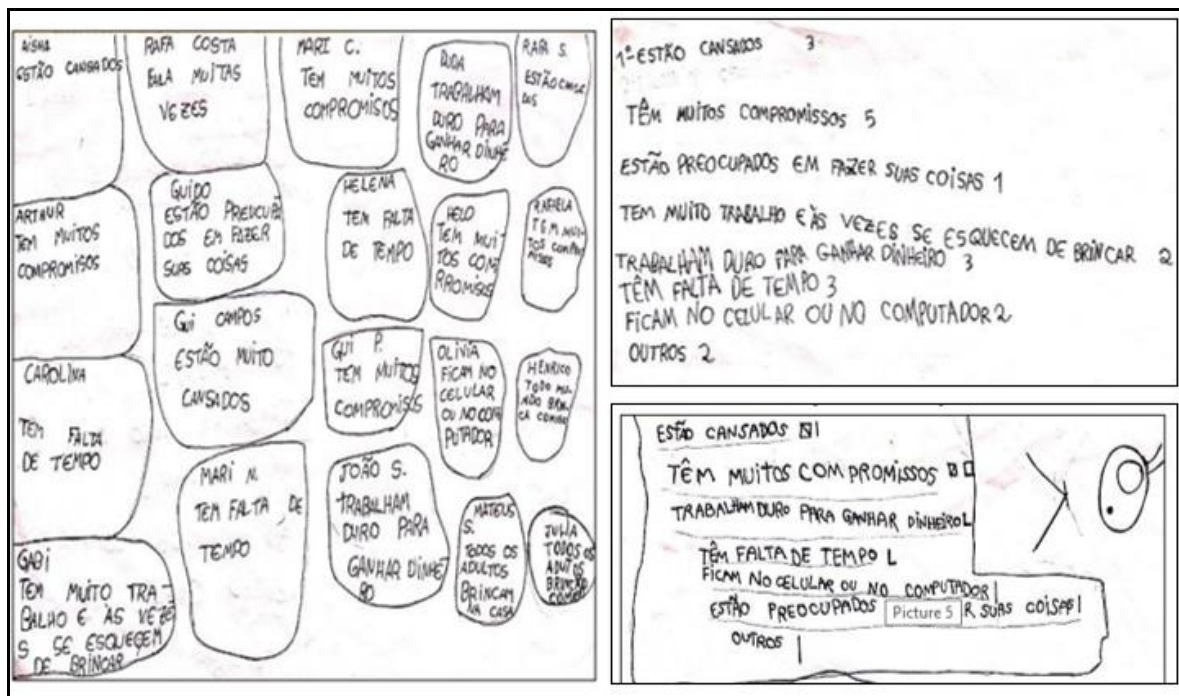 AISHA
ESTÃO CANSADOS
RAFA COSTA
MUITAS
VEZES
MARI C.
TEM MUITOS
COMPROMISOS
DUDA
TRABALHAM
DURO PARA
GANHAR DINHE
RO
RAFA S.
ESTÃO
DOS
ARTHUR
TEM MUITOS
COMPROMISOS
GUIDO
ESTÃO PREOCUPA
DOS EM FAZER
SUAS COISAS
HELENA
TEM FALTA
DE TEMPO
HELO
TEM MUI
TOS COM
PROMISOS
RAFAELA
TEM MUI
TOS COMPRO
MISSOS
GUI CAMPOS
ESTÃO MUITO
CANSADOS
GUI P.
TEM MUITOS
COMPROMISOS
OLIVIA
FICAM NO
CELULAR
OU NO COM
PUTADOR
HENRICO
TODO MU
NDO BRIN
CA
CAROLINA
TEM FALTA
DE TEMPO
MARI N.
TEM FALTA DE
TEMPO
JOÃO S.
TRABALHAM
DURO PARA
GANHAR DINHE
RO
MATEUS
S.
TODOS OS
ADULTOS
BRINCAM
NA CASA
JULIA
TODOS OS
ADULTOS
GABI
TEM MUITO TRA-
BALHO E ÀS VEZE
S SE ESQUECEM
DE BRINCAR
1º ESTÃO CANSADOS 3
TÊM MUITOS COMPROMISSOS 5
ESTÃO PREOCUPADOS EM FAZER SUAS COISAS 1
TEM MUITO TRABALHO E ÀS VEZES SE ESQUECEM DE BRINCAR 2
TRABALHAM DURO PARA GANHAR DINHEIRO 3
TÊM FALTA DE TEMPO 3
FICAM NO CELULAR OU NO COMPUTADOR 2
OUTROS 2
ESTÃO CANSADOS
TÊM MUITOS COMPROMISSOS
TRABALHAM DURO PARA GANHAR DINHEIRO
TÊM FALTA DE TEMPO
FICAM NO CELULAR OU NO COMPUTADOR
ESTÃO PREOCUPADOS Picture 5 R SUAS COISAS
OUTROS